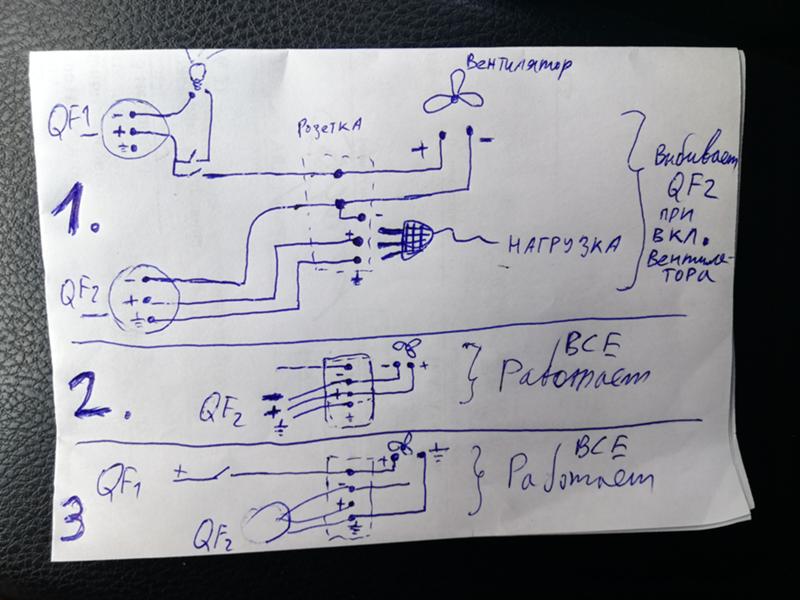 Вентилятор
QF1
-
+
Розетка
+
-
1.
-
+
НАГРУЗКА
QF2
-
+
Выбивает
QF2
при
вкл.
Вентиля-
тора
2.
QF2
-
+
-
+
-
+
ВСЕ
Работает
3
QF1
±
QF2
-
+
+
ВСЕ
Работает